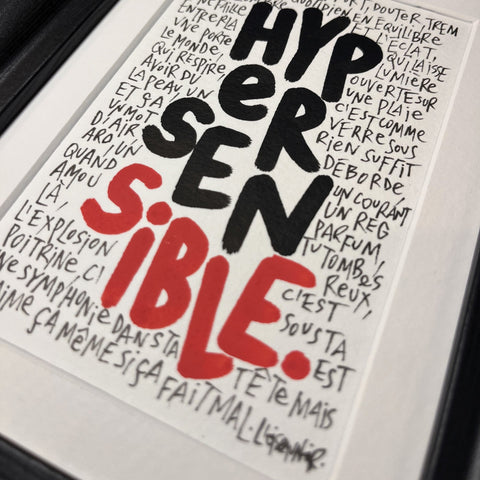 DOUTER, TREM
EN ÉQUILIBRE
ENTRE LA ET L'ÉCLAT,
UNE PORTE QUI LAISSE
LE MONDE, LUMIÈRE
QUI RESPIRE OUVERTE SUR
AVOIR DU UNE PLAIE
LA PEAU, UN C'EST COMME
ET ÇA VERRE SOUS
UN MOT RIEN SUFFIT
D'AIR DÉBORDE
ARD UN UN COURANT
QUAND UN REG
AMOU PARFUM,
LÀ, TU TOMBES
L'EXPLOSION REUX,
POITRINE, C' C'EST
NE SYMPHONIE DANS TA SOUS TA
AIME ÇA MÊME SI ÇA TÊTE MAIS EST
FAIT MAL.
HYP
eR
SEN
SiBLE.